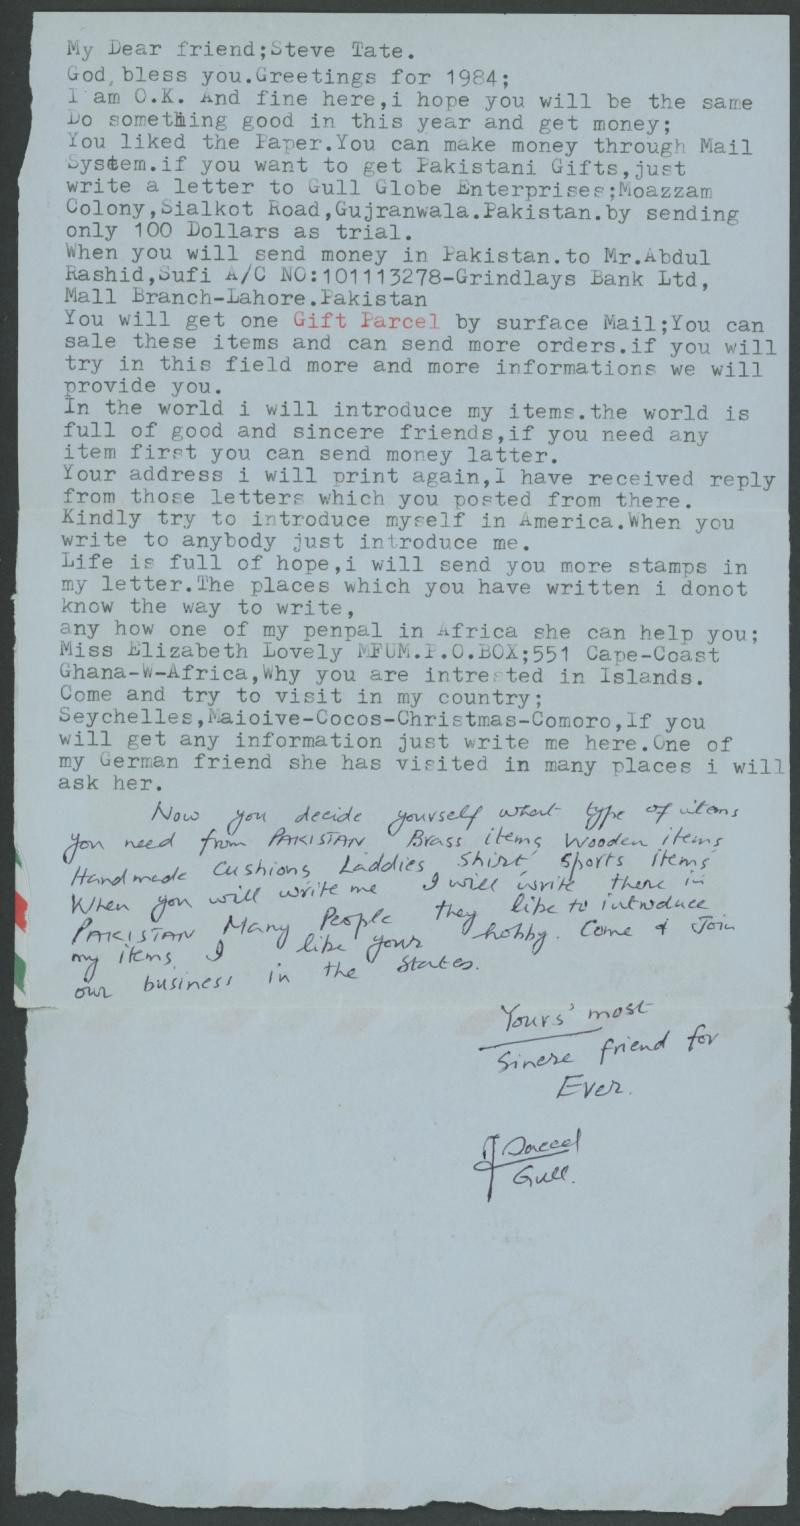 My Dear friend;Steve Tate.
God,bless you.Greetings for 1984;
I am O.K. And fine here,i hope you will be the same
Do something good in this year and get money;
You liked the Paper.You can make money through Mail
System.if you want to get Pakistani Gifts,just
write a letter to Gull Globe Enterprises;Moazzam
Colony,Sialkot Road,Gujranwala.Pakistan.by sending
only 100 Dollars as trial.
When you will send money in Pakistan.to Mr.Abdul
Rashid,Sufi A/C NO:101113278-Grindlays Bank Ltd,
Mall Branch-Lahore.Pakistan
You will get one Gift Parcel by surface Mail;You can
sale these items and can send more orders.if you will
try in this field more and more informations we will
provide you.
In the world i will introduce my items.the world is
full of good and sincere friends,if you need any
item first you can send money latter.
Your address i will print again,I have received reply
from those letters which you posted from there.
Kindly try to introduce myself in America.When you
write to anybody just introduce me.
Life is full of hope,i will send you more stamps in
my letter.The places which you have written i donot
know the way to write,
any how one of my penpal in Africa she can help you;
Miss Elizabeth Lovely MFUM.P.O.BOX;551 Cape-Coast
Ghana-W-Africa,Why you are intrested in Islands.
Come and try to visit in my country;
Seychelles,Maioive-Cocos-Christmas-Comoro,If you
will get any information just write me here.One of
my German friend she has visited in many places i will
ask her.
Now you decide yourself what type of items
you need from PAKISTAN Brass items, Wooden items,
Handmade Cushions, Laddies Shirt, Sports Items
When you will write me I will write there in
PAKISTAN Many People they like to introduce
my items. I like your hobby. Come & Join
our business in the States.
Yours' most
Sinere friend for
Ever.
Gull.